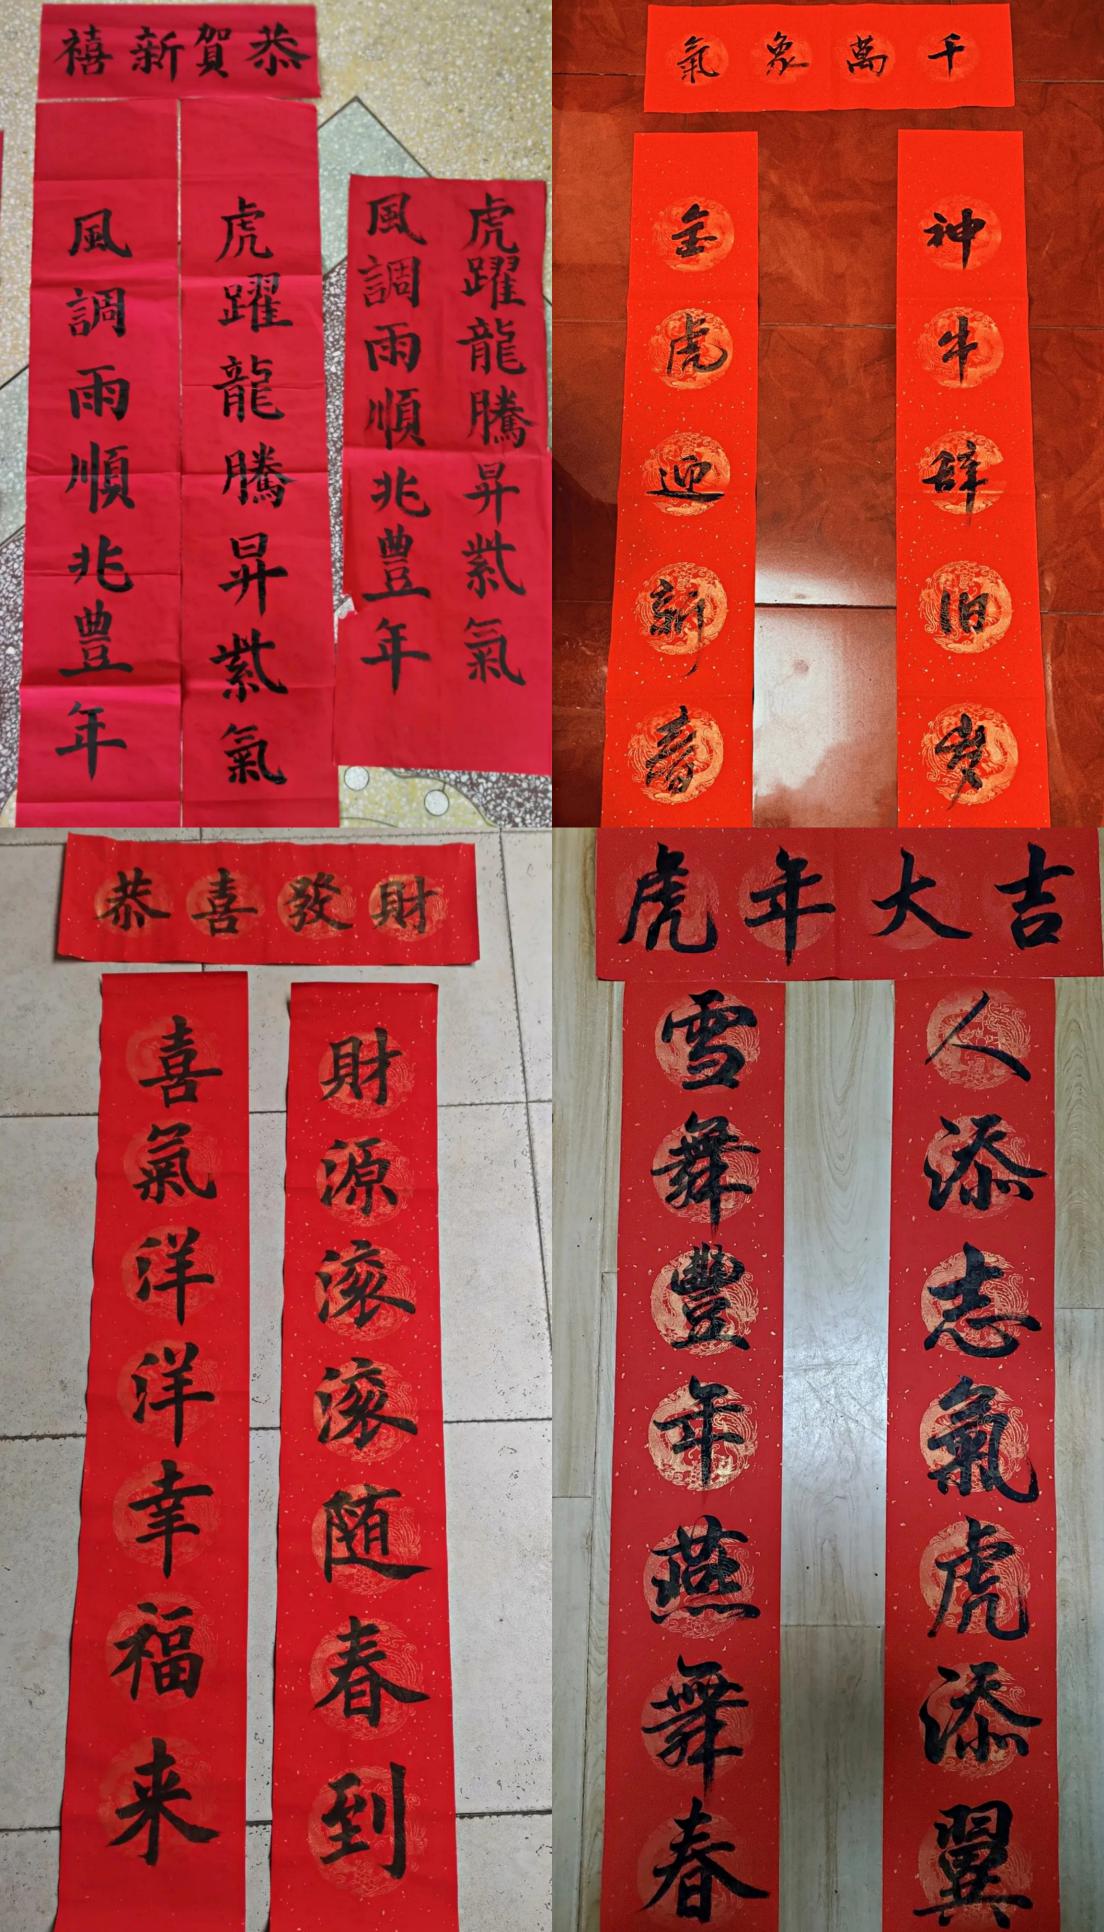 禧新賀恭
虎躍龍騰昇紫氣
風調雨順兆豐年
虎躍龍騰昇紫氣
風調雨順兆豐年
氣象萬千
神牛辞旧岁
金虎迎新春
恭喜發財
財源滚滚随春到
喜氣洋洋幸福来
虎年大吉
人添志氣虎添翼
雪舞豐年燕舞春